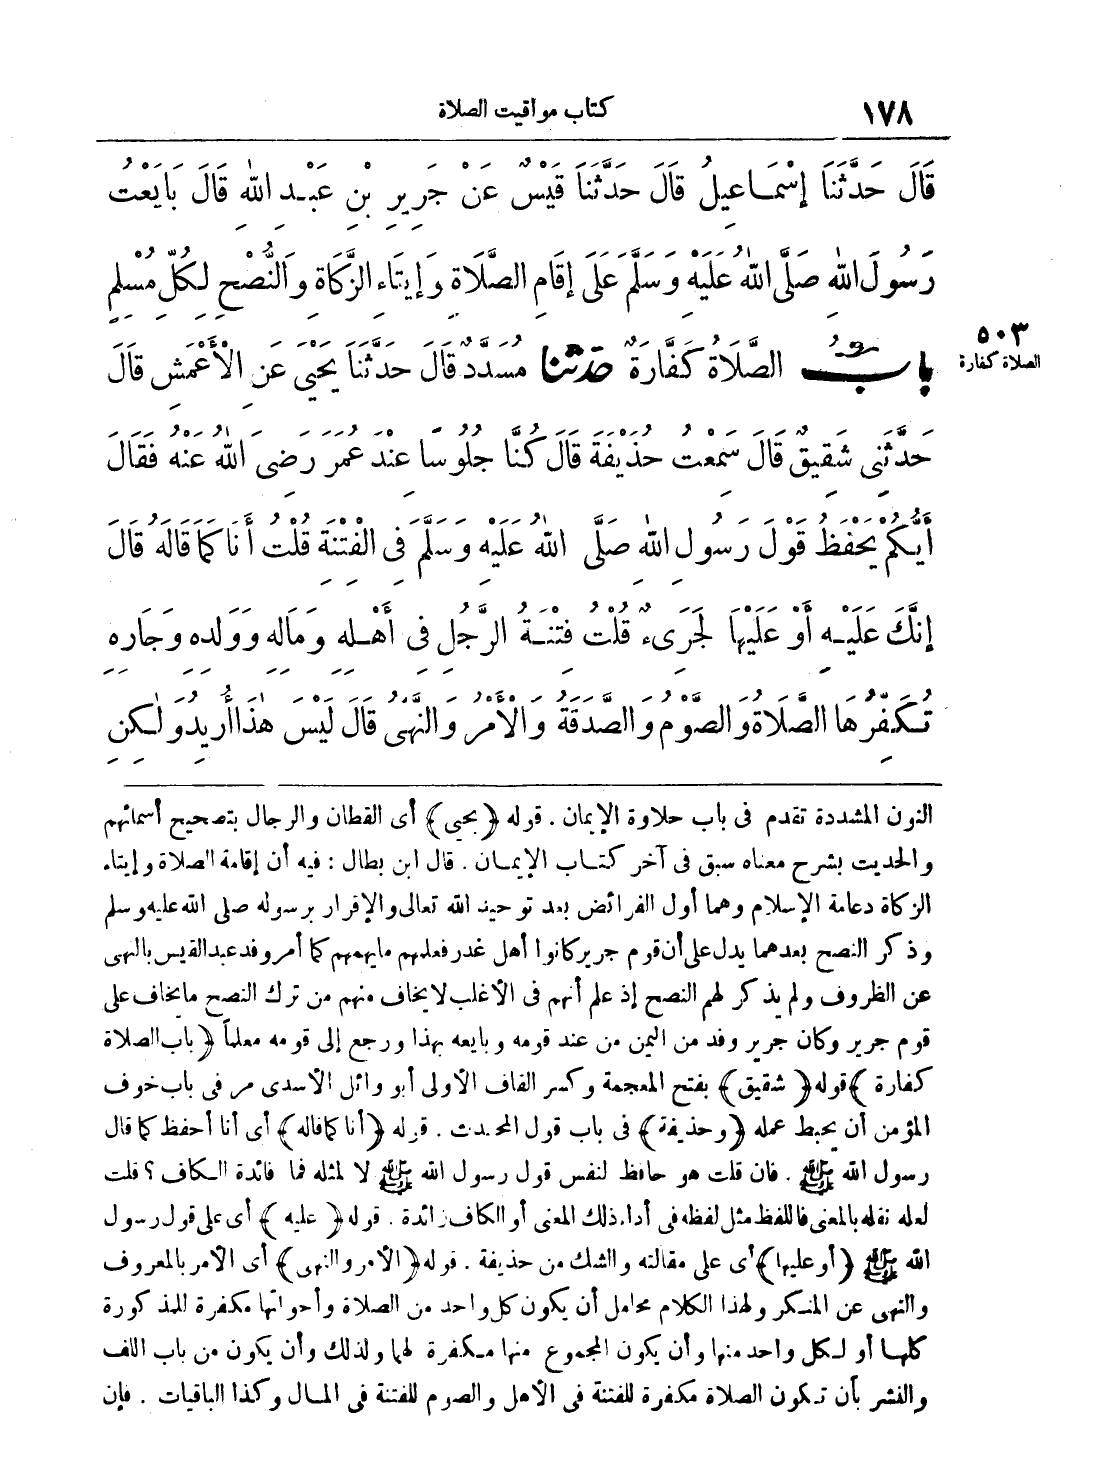 ١٧٨
كتاب مواقيت الصلاة
قَالَ حَدَّثَنَا إِسْمَاعِيلُ قَالَ حَدَّثَنَا قَيْسٌ عَنْ جَرِيرِ بْنِ عَبْدِ اللهِ قَالَ بَايَعْتُ
رَسُولَ اللهِ صَلَّى اللهُ عَلَيْهِ وَسَلَّمَ عَلَى إِقَامِ الصَّلَاةِ وَإِيتَاءِ الزَّكَاةِ وَالنُّصْحِ لِكُلِّ مُسْلِمٍ
٥٠٣
الصلاة كفارة
بَابٌ الصَّلَاةُ كَفَّارَةٌ حَدَّثَنَا مُسَدَّدٌ قَالَ حَدَّثَنَا يَحْيَى عَنِ الْأَعْمَشِ قَالَ
حَدَّثَنِي شَقِيقٌ قَالَ سَمِعْتُ حُذَيْفَةَ قَالَ كُنَّا جُلُوسًا عِنْدَ عُمَرَ رَضِىَ اللهُ عَنْهُ فَقَالَ
أَيُّكُمْ يَحْفَظُ قَوْلَ رَسُولِ اللهِ صَلَّى اللهُ عَلَيْهِ وَسَلَّمَ فِى الْفِتْنَةِ قُلْتُ أَنَا كَمَا قَالَهُ قَالَ
إِنَّكَ عَلَيْهِ أَوْ عَلَيْهَا لَجَرِىءٌ قُلْتُ فِتْنَةُ الرَّجُلِ فِى أَهْلِهِ وَمَالِهِ وَوَلَدِهِ وَجَارِهِ
تُكَفِّرُهَا الصَّلَاةُ وَالصَّوْمُ وَالصَّدَقَةُ وَالْأَمْرُ وَالنَّهْىُ قَالَ لَيْسَ هٰذَا أُرِيدُ وَلٰكِنِ
النون المشددة تقدم فى باب حلاوة الإيمان . قوله ﴿يحيى﴾ أى القطان والرجال بتصحيح أسمائهم
والحديث بشرح معناه سبق فى آخر كتاب الإيمان . قال ابن بطال : فيه أن إقامة الصلاة وإيتاء
الزكاة دعامة الإسلام وهما أول الفرائض بعد توحيد الله تعالى والإقرار برسوله صلى الله عليه وسلم
وذكر النصح بعدهما يدل على أن قوم جرير كانوا أهل غدر فعلمهم ما يهمهم كما أمر وفد عبد القيس بالنهى
عن الظروف ولم يذكر لهم النصح إذ علم أنهم فى الأغلب لا يخاف منهم من ترك النصح ما يخاف على
قوم جرير وكان جرير وفد من اليمن من عند قومه وبايعه بهذا ورجع إلى قومه معلماً ﴿باب الصلاة
كفارة﴾ قوله ﴿شقيق﴾ بفتح المعجمة وكسر القاف الأولى أبو وائل الأسدى مر فى باب خوف
المؤمن أن يحبط عمله ﴿وحذيفة﴾ فى باب قول المحدث . قوله ﴿أنا كما قاله﴾ أى أنا أحفظ كما قال
رسول الله ﷺ . فان قلت هو حافظ لنفس قول رسول الله ﷺ لا لمثله فما فائدة الكاف ؟ قلت
لعله نقله بالمعنى فاللفظ مثل لفظه فى أداء ذلك المعنى أو الكاف زائدة . قوله ﴿عليه﴾ أى على قول رسول
الله ﷺ ﴿أو عليها﴾ أى على مقالته والشك من حذيفة . قوله ﴿الأمر والنهى﴾ أى الأمر بالمعروف
والنهى عن المنكر ولهذا الكلام محامل أن يكون كل واحد من الصلاة وأخواتها مكفرة للمذكورة
كلها أو لكل واحد منها وأن يكون المجموع منها مكفرة لهما ولذلك وأن يكون من باب اللف
والنشر بأن تكون الصلاة مكفرة للفتنة فى الأهل والصوم للفتنة فى المال وكذا الباقيات . فإن